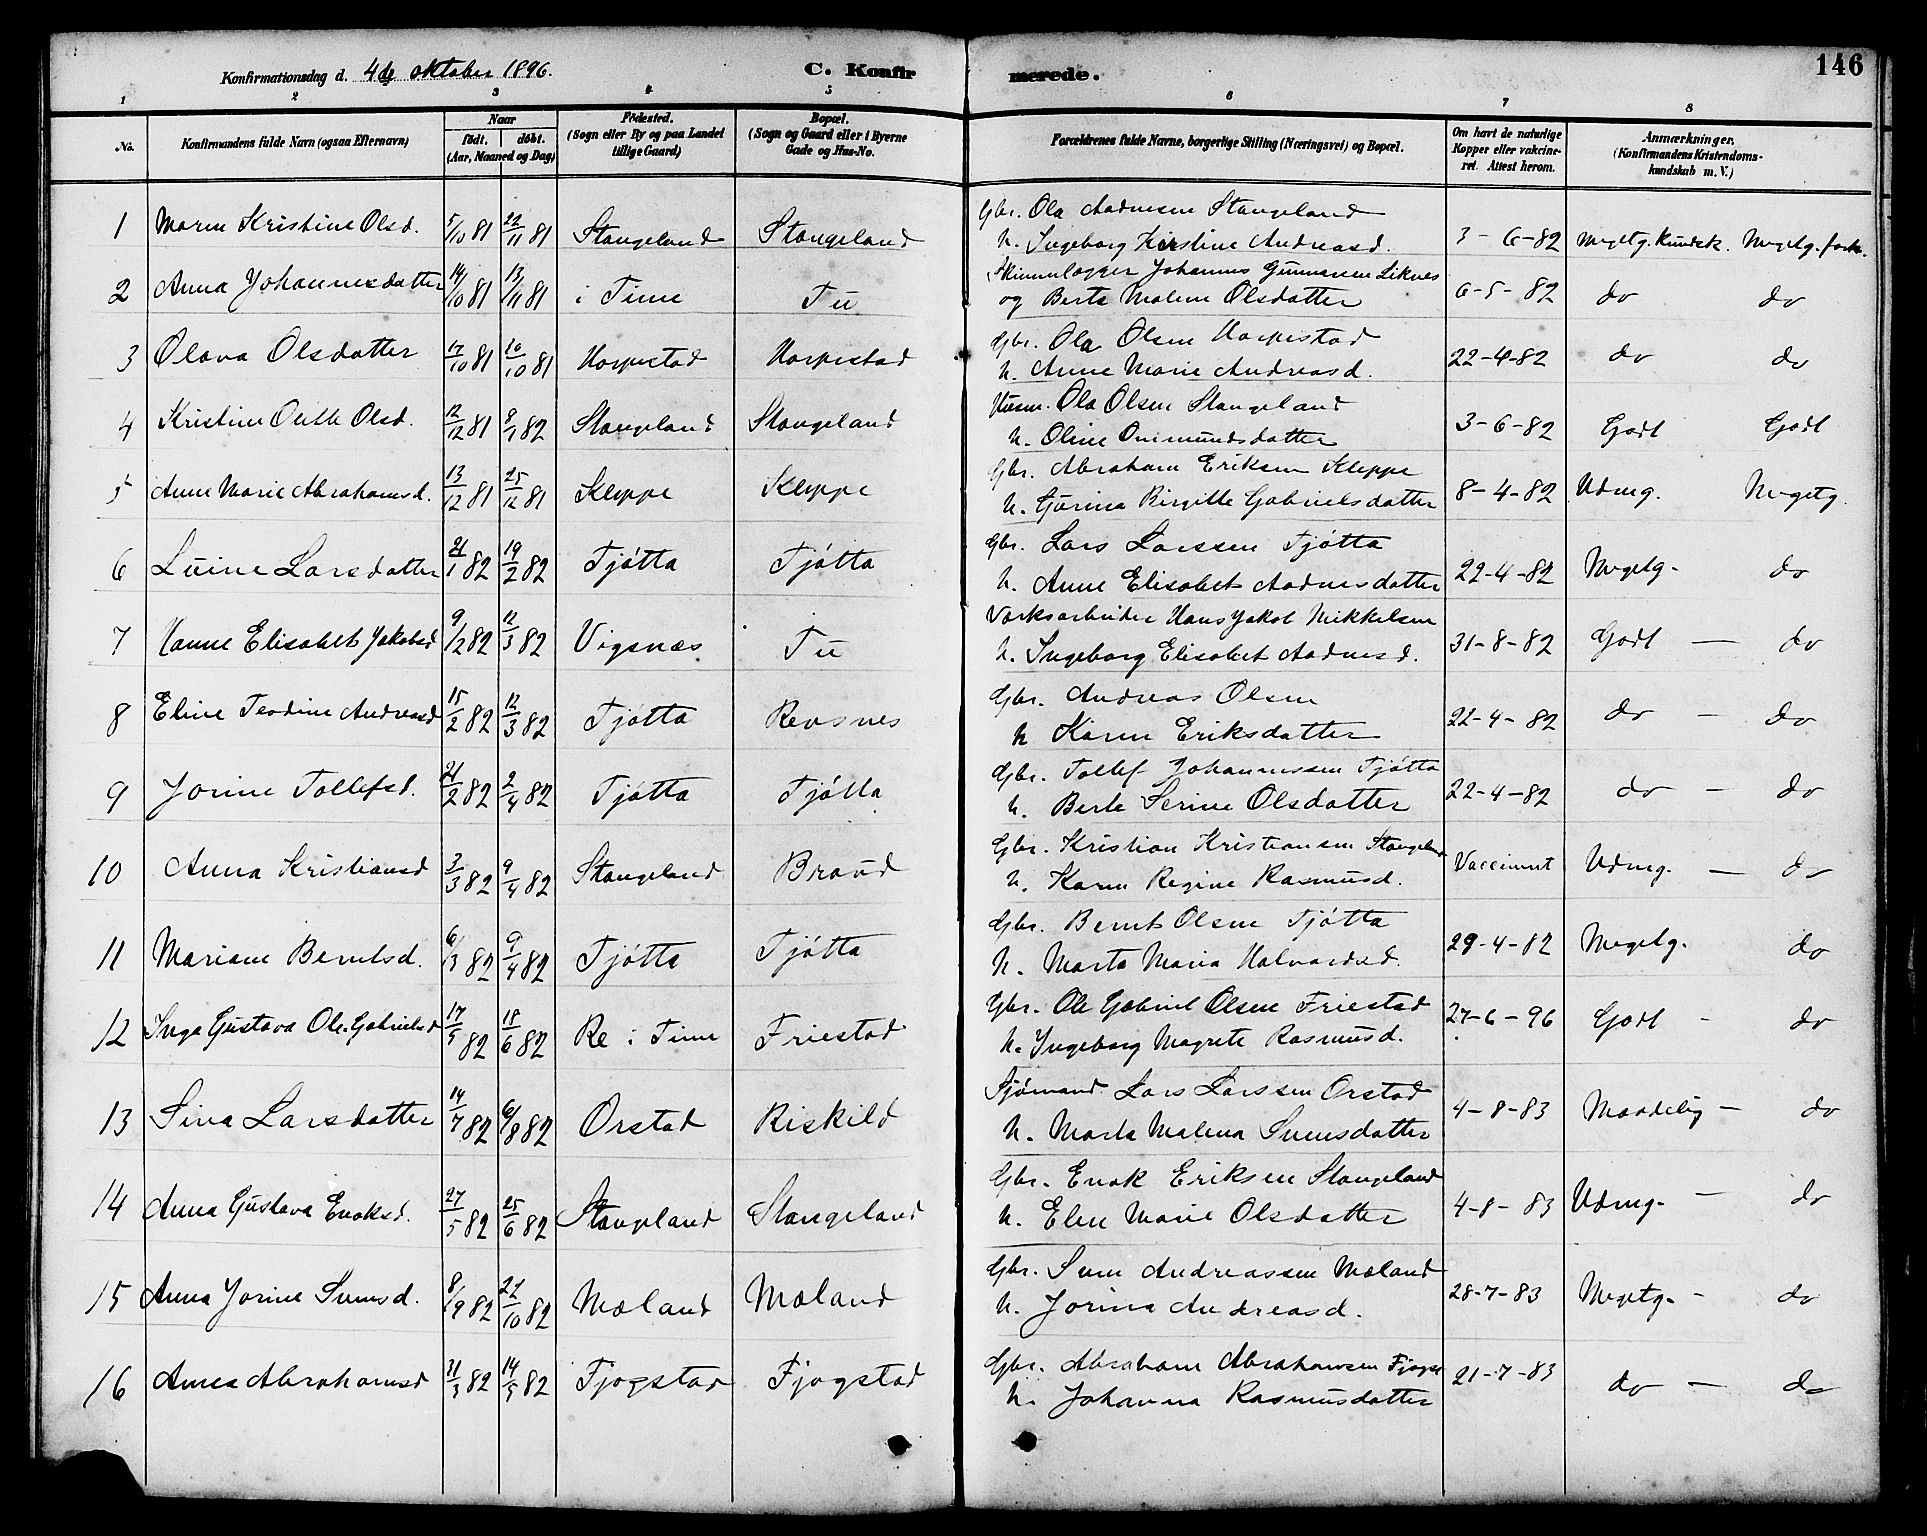 Konfirmationsdag d. 4de oktober 1896. C. Konfirmerede. 146
1 2 3 4 5 6 7 8
No. Konfirmandens fulde Navn (ogsaa Efternavn) Naar født. døbt. (Aar, Maaned og Dag) Fødested. (Sogn eller By og paa Landet tillige Gaard) Bopæl. (Sogn og Gaard eller i Byerne Gade og Hus-No. Forældrenes fulde Navne, borgerlige Stilling (Næringsvei) og Bopæl. Om havt de naturlige Kopper eller vakcineret. Attest herom. Anmærkninger. (Konfirmandens Kristendomskundskab m. V.)
1 Maren Kristine Olsd. 5/10 81 22/11 81 Stangeland Stangeland Gbr. Ola Aadnesen Stangeland
h. Ingeborg Kirstine Andreasd. 3-6-82 Megetg. Kundsk. Megetg. forh.
2 Anna Johannesdatter 14/10 81 13/11 81 i Time Tu Skindlogger Johannes Gunnarsen Liknes
og Berta Malene Olsdatter 6-5-82 do do
3 Olava Olsdatter 17/10 81 16/10 81 Horpestad Horpestad Gbr. Ola Olsen Horpestad
h. Anne Marie Andreasd. 22-4-82 do do
4 Kristine Olsd. 12/12 81 9/1 82 Stangeland Stangeland Husm. Ola Olsen Stangeland
h. Oline Omundsdatter 3-6-82 Godt Godt
5 Anne Marie Abrahamsd. 13/12 81 25/12 81 Kleppe Kleppe Gbr. Abraham Eriksen Kleppe
h. Gurina Birgitte Gabrielsdatter 8-4-82 Udmg. Megetg.
6 Luine Larsdatter 21/1 82 19/2 82 Tjøtta Tjøtta Gbr. Lars Larssen Tjøtta
h. Anne Elisabet Aadnesdatter 22-4-82 Megetg- do
7 Hanne Elisabet Jakobsd 9/2 82 12/3 82 Vigsnæs Tu Værksarbeider Hans Jakob Mikkelsen
h. Ingeborg Elisabet Aadnesd. 31-8-82 Godt - do
8 Eline Teodine Andreasd 15/2 82 12/3 82 Tjøtta Revsnes Gbr. Andreas Olsen
h Karen Eriksdatter 22-4-82 do - do
9 Jorine Tollefsd. 21/2 82 2/4 82 Tjøtta Tjøtta Gbr. Tollef Johannessen Tjøtta
h. Berte Serine Olsdatter 22-4-82 do - do
10 Anna Kristiansd 3/3 82 9/4 82 Stangeland Braud Gbr. Kristian Kristiansen Stangeland
h. Karen Regine Rasmusd. Vaccineret Udmg. - do
11 Mariane Berntsd. 6/3 82 9/4 82 Tjøtta Tjøtta Gbr. Bernt Olsen Tjøtta
h. Marta Maria Halvardsd. 29-4-82 Megetg. do
12 Inga Gustava Ole-Gabrielsd 17/5 82 18/6 82 Re i Time Friestad Gbr. Ole Gabriel Olsen Friestad
h. Ingeborg Magrete Rasmusd. 27-6-96 Godt - do
13 Sina Larsdatter 14/7 82 6/8 82 Orstad Riskild Sjømand Lars Larssen Orstad
h. Marta Malena Svensdatter 4-8-83 Maadelig - do
14 Anna Gustava Enoksd. 27/5 82 25/6 82 Stangeland Stangeland Gbr. Enok Eriksen Stangeland
h. Elen Marie Olsdatter 4-8-83 Udmg- - do
15 Anna Jorine Svensd. 8/9 82 22/10 82 Mæland Mæland Gbr. Sven Andreassen Mæland
h. Jorina Andreasd. 28-7-83 Megetg- - do
16 Annea Abrahamsd 31/3 82 14/5 82 Fjogstad Fjogstad Gbr. Abraham Abrahamsen Fjogst
h. Johanna Rasmusdatter 21-7-83 do - do